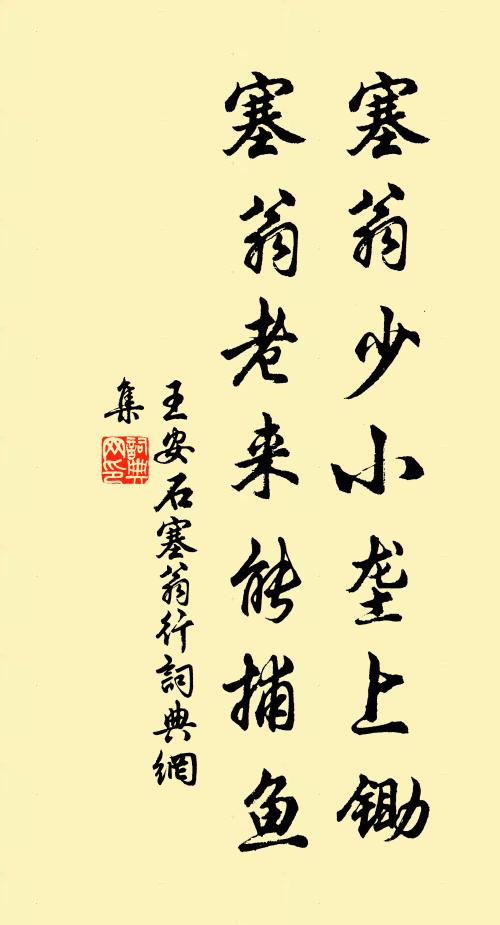 塞翁少小垄上锄
塞翁老来能捕鱼
王安石塞翁行詞典網
集
詞典网印